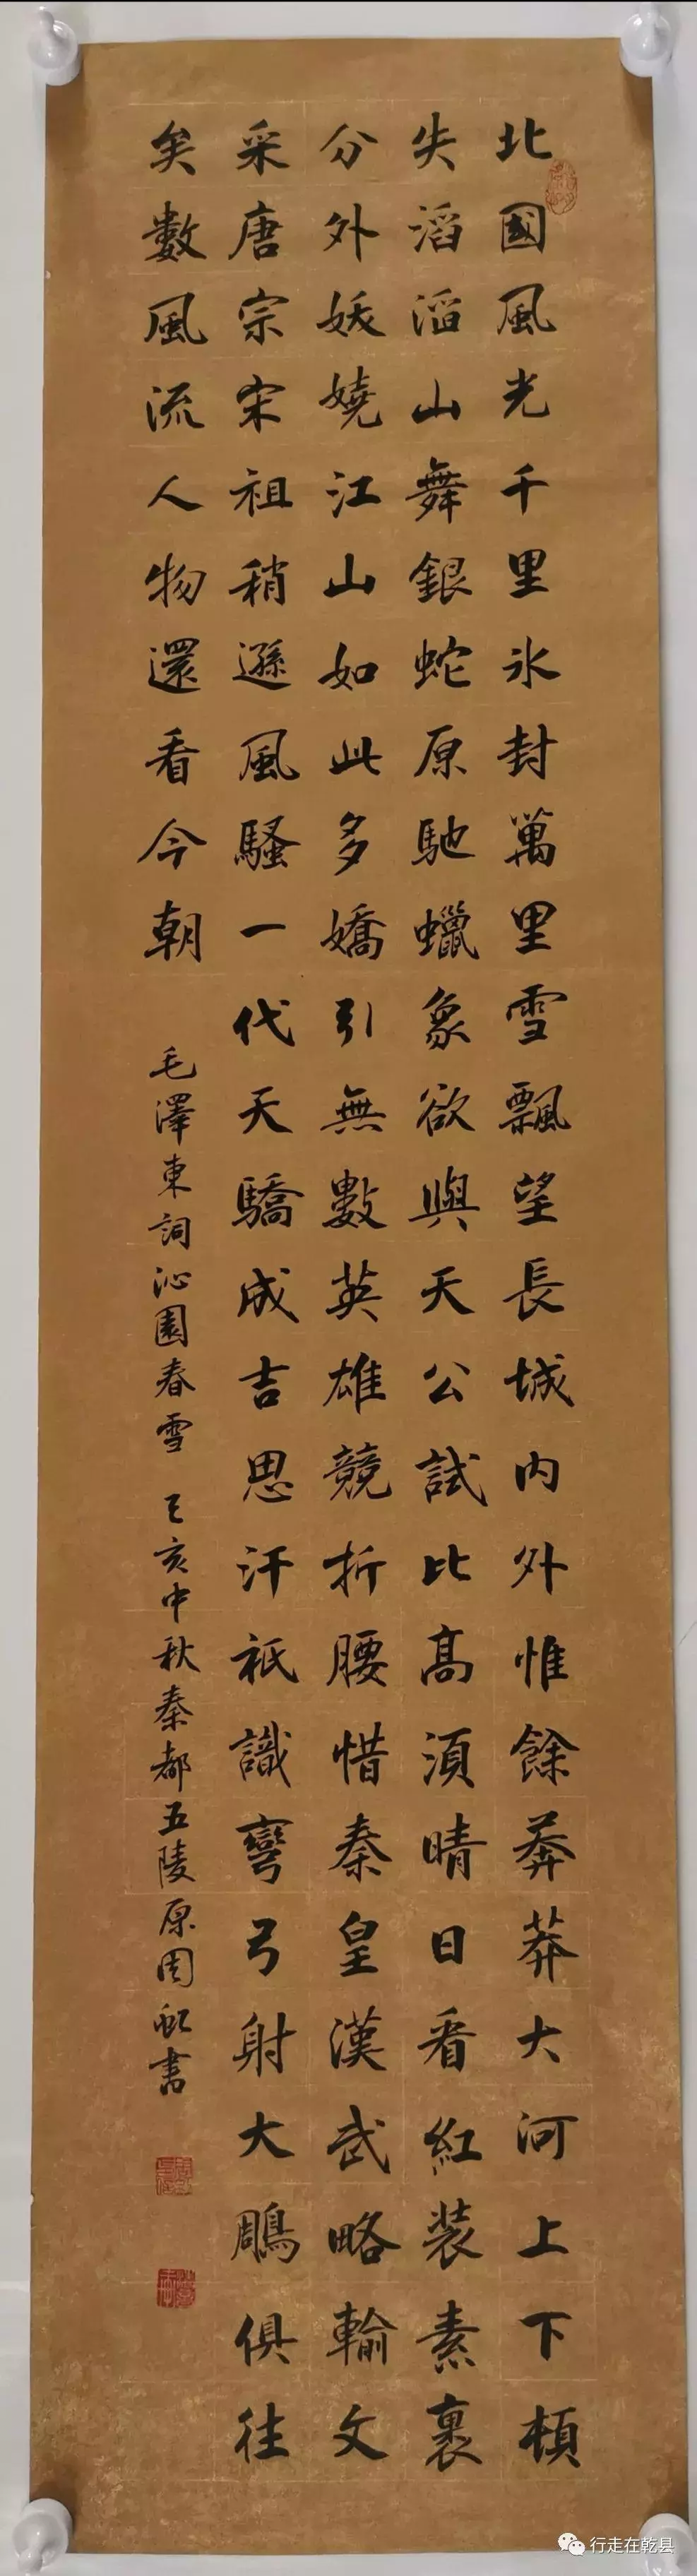 北國風光千里冰封萬里雪飄望長城內外惟餘莽莽大河上下頓
失滔滔山舞銀蛇原馳蠟象欲與天公試比高須晴日看紅裝素裹
分外妖嬈江山如此多嬌引無數英雄競折腰惜秦皇漢武略輸文
采唐宗宋祖稍遜風騷一代天驕成吉思汗祇識彎弓射大鵰俱往
矣數風流人物還看今朝
毛澤東詞沁園春雪 己亥中秋秦都五陵原周書
行走在乾县